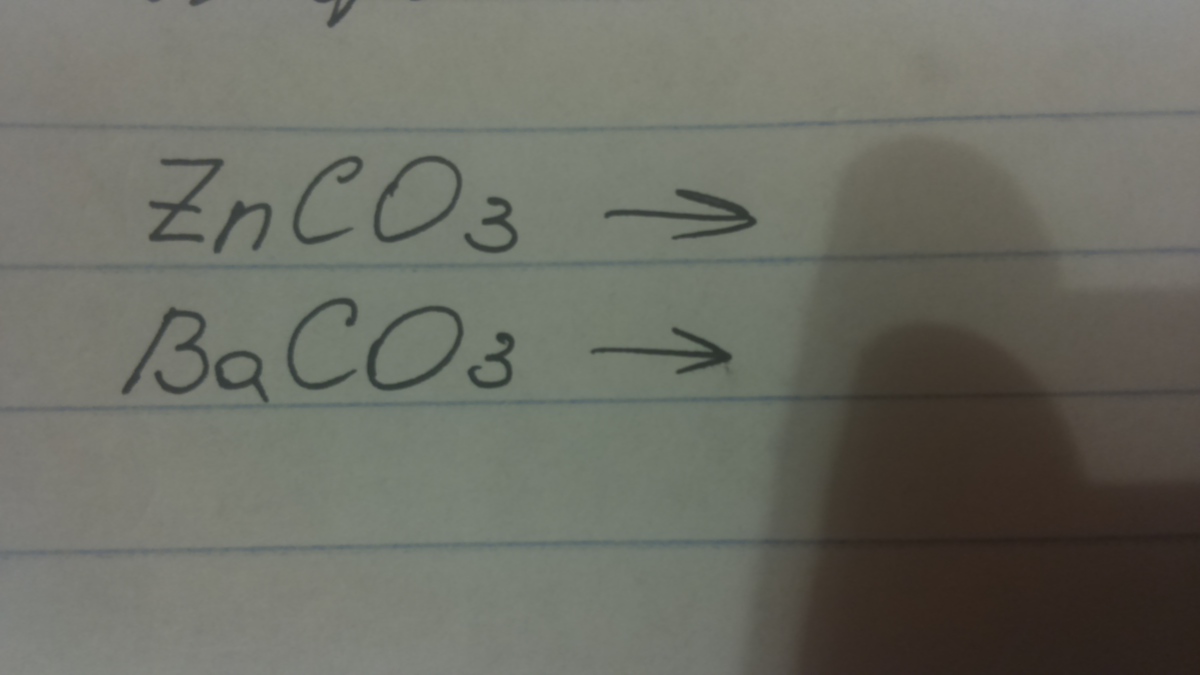 ZnCO₃ →
BaCO₃ →